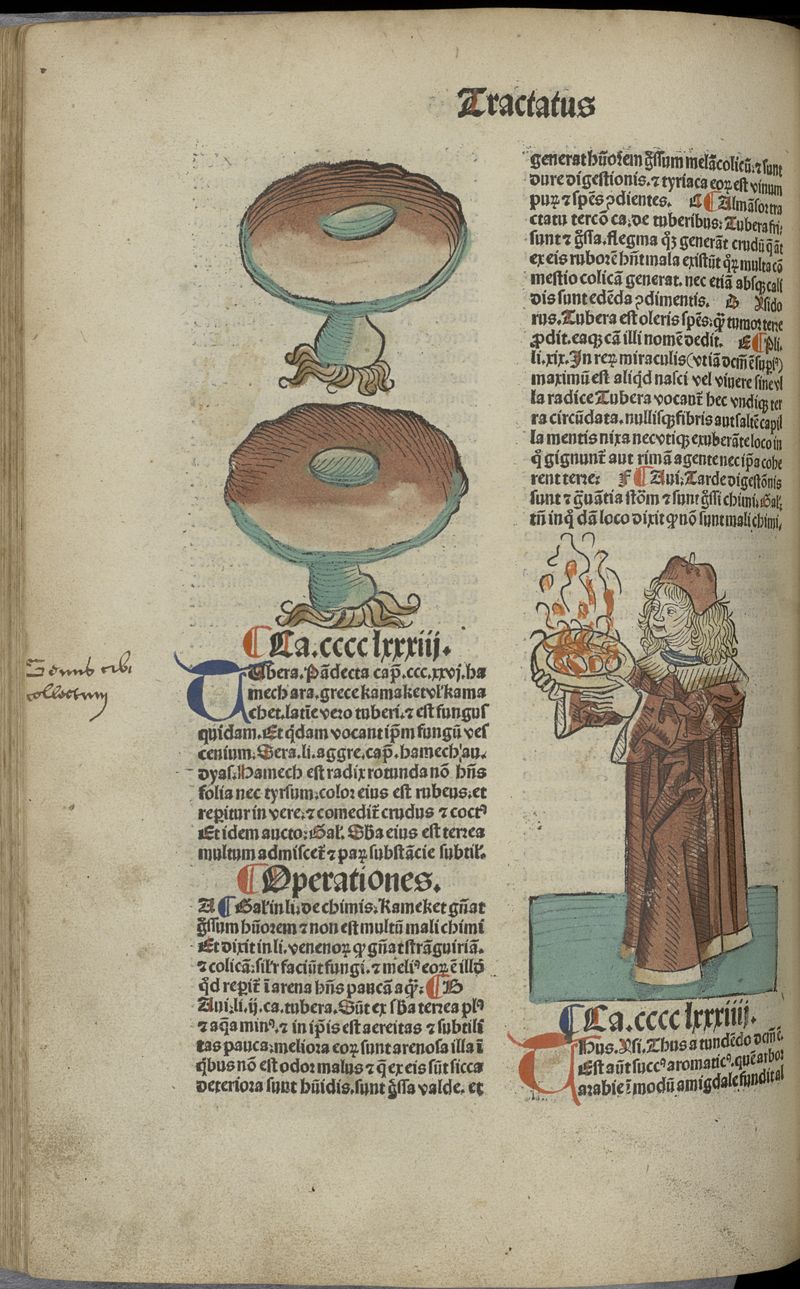 Tractatus
Ca. cccc lxxxiij.
Tubera. Pãdecta cap̃. ccc. xxvj. ha
mech ara. grece kamaketvl' kama
chet. latĩe vero tuberi. ⁊ est fungus
quidam. Et q̃dam vocant ip̃m fungũ ves
cenium. Sera. li. aggre. cap̃. hamech. au.
dyas. Hamech est radix rotunda nõ hñs
folia nec tyrsum. color eius est rubeus. et
reperitur in vere. ⁊ comedit̃ crudus ⁊ coctꝰ
Et idem aucto. Gal. Sba eius est terrea
multum admiscet̃ ⁊ paꝝ substãcie subtil'.
Operationes.
A Gal' in li. de chimis. Kameket gñat
g̃ssum hũorem ⁊ non est multũ mali chimi
Et dixit in li. venenoꝝ ꝙ gñat strãguiriã.
⁊ colicã. sil'r faciũt fungi. ⁊ meliꝰ eoꝝ ẽ illđ
qđ reperit̃ ĩ arena hñs paucã aq̃. B
Aui. li. ij. ca. tubera. Sũt ex sba terrea plꝰ
⁊ aq̃a minꝰ. ⁊ in ip̃is est aereitas ⁊ subtili
tas pauca. meliora eoꝝ sunt arenosa illa ĩ
q̃bus nõ est odor malus ⁊ q̃ ex eis sũt sicca
deteriora sunt hũidis. sunt g̃ssa valde. et
generat hũorem g̃ssum melãcolicũ. ⁊ sunt
dure digestionis. ⁊ tyriaca eoꝝ est vinum
puꝝ ⁊ sp̃es ꝯdientes. C Almãsor tra
ctatu tercõ ca. de tuberibus. Tubera fri.
sunt ⁊ g̃ssa. flegma qꝫ generãt crudũ q̃ãt
ex eis ruborẽ hñt mala existũt qꝛ multa cõ
mestio colicã generat. nec etiã absqꝫ cali
dis sunt edẽda ꝯdimentis. D Ysido
rus. Tubera est oleris sp̃es. q̃ tumor terre
ꝓdit. eaqꝫ cã illi nomẽ dedit. E Pli.
li. xix. In reꝝ miraculis (vt iã dcm̃ ẽ sup̃)
maximũ est aliq̃d nasci vel viuere sine vl
la radice Tubera vocant̃ hec vndiqꝫ ter
ra circũdata. nullisqꝫ fibris aut saltẽ capil
lamentis nixa nec vtiqꝫ exuberãte loco in
q̃ gignunt̃ aut rimã agente nec ip̃a cohe
rent terre. F Aui. Tarde digestõnis
sunt ⁊ g̃uãtia stõm ⁊ sunt g̃ssi chimi. Gal.
tñ in q̃dã loco dixit ꝙ nõ sunt mali chimi.
Ca. cccc lxxxiiij.
Thus. Ysi. Thus a tundẽdo dcm̃ ẽ.
Est aũt succꝰ aromaticꝰ. quẽ arbor
arabie ĩ modũ amigdale fundit al